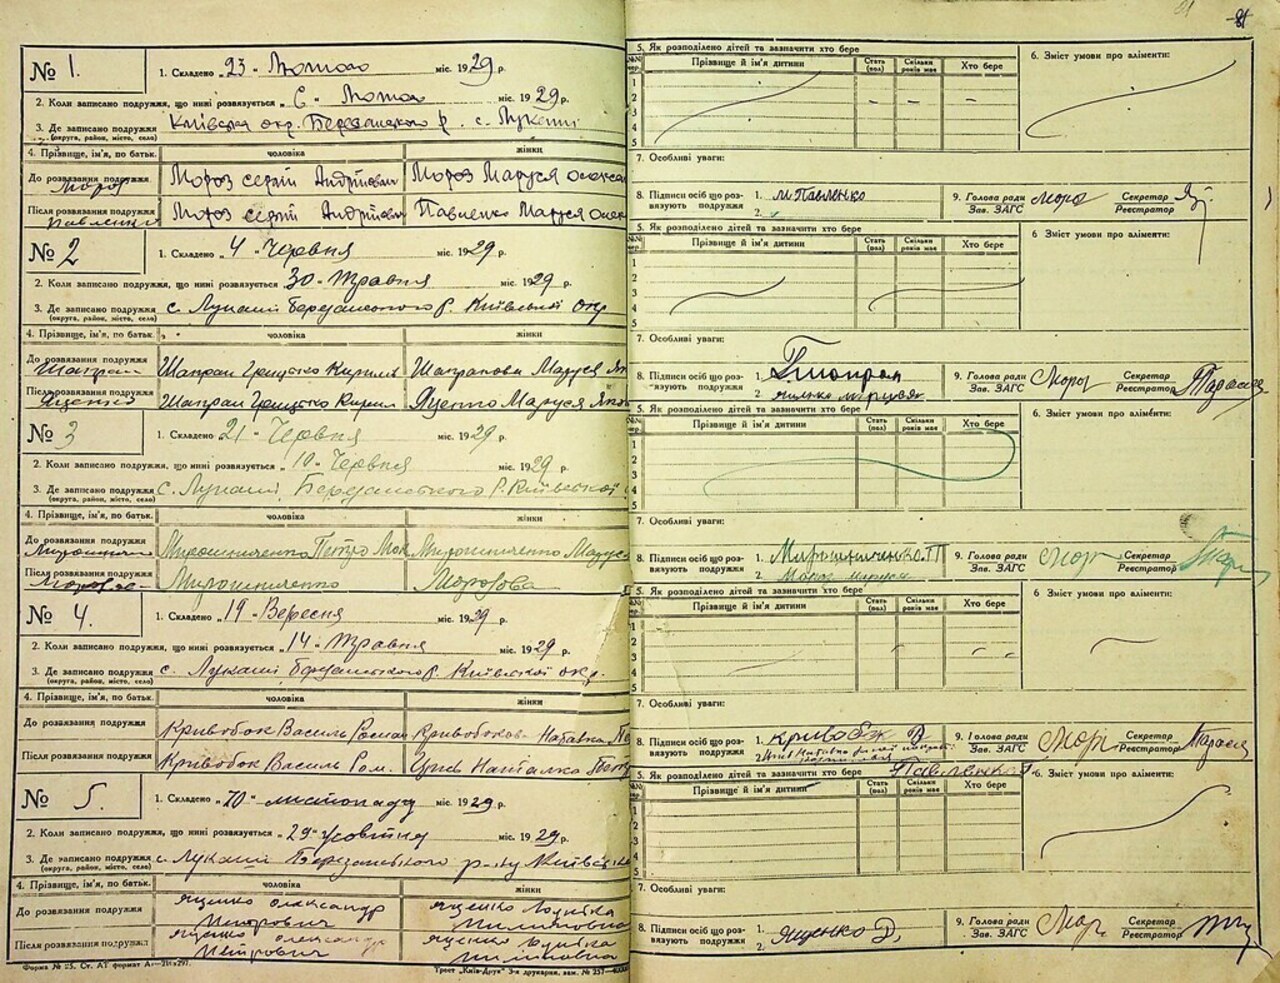 81
№ 1.
1. Складено „23" Лютого міс. 1929 р.
2. Коли записано подружжя, що нині розвязується „6" Лютого міс. 1929 р.
3. Де записано подружжя Київська окр. Березанського р. с. Лукаші
(округа, район, місто, село)
4. Прізвище, ім'я, по батьк. чоловіка жінки
До розвязання подружжя. Мороз Сергій Андрійович Мороз Маруся Олекса
Мороз
Після розвязання подружжя Мороз Сергій Андрійович Павленко Маруся Олек
Павленко
5. Як розподілено дітей та зазначити хто бере
Прізвище й ім'я дитини Стать (пол) Скільки років має Хто бере
1
2
3
4
5
6. Зміст умови про аліменти:
7. Особливі уваги:
8. Підписи осіб що розвязують подружжя 1. М Павленко
2.
9. Голова ради Мороз Секретар
Зав. ЗАГС Реєстратор
№ 2
1. Складено „4" Червня міс. 1929 р.
2. Коли записано подружжя, що нині розвязується „30" Травня міс. 1929 р.
3. Де записано подружжя с. Лукаші Березанського р. Київської окр
(округа, район, місто, село)
4. Прізвище, ім'я, по батьк. чоловіка жінки
До розвязання подружжя Шапран Грицько Кирил Шапранова Маруся Як
Шапран
Після розвязання подружжя Шапран Грицько Кирил Яценко Маруся Яко
Яценко
5. Як розподілено дітей та зазначити хто бере
Прізвище й ім'я дитини Стать (пол) Скільки років має Хто бере
1
2
3
4
5
6 Зміст умови про аліменти:
7. Особливі уваги:
8. Підписи осіб що розвязують подружжя 1. Г Шапран
2.
9. Голова ради Мороз Секретар
Зав. ЗАГС Реєстратор
№ 3
1. Складено „21" Червня міс. 1929 р.
2. Коли записано подружжя, що нині розвязується „10" Червня 1929 р.
3. Де записано подружжя с. Лукаші, Березанського Р. Київської
(округа, район, місто, село)
4. Прізвище, ім'я, по батьк. чоловіка жінки
До розвязання подружжя Мирошниченко Петро Мак Мирошниченко Маруся
Мирошничен
Після розвязання подружжя Мирошниченко Морозова
5. Як розподілено дітей та зазначити хто бере
Прізвище й ім'я дитини Стать (пол) Скільки років має Хто бере
1
2
3
4
5
6. Зміст умови про аліменти:
7. Особливі уваги:
8. Підписи осіб що розвязують подружжя 1. Мирошниченко П
2. Мороз Маруся
9. Голова ради Мороз Секретар
Зав. ЗАГС Реєстратор
№ 4.
1. Складено „19" Вересня міс. 1929 р.
2. Коли записано подружжя, що нині розвязується „14" Травня міс. 1929 р.
3. Де записано подружжя с. Лукаші Березанського р. Київської окр.
(округа, район, місто, село)
4. Прізвище, ім'я, по батьк. чоловіка жінки
До розвязання подружжя Кривобок Василь Роман Кривобокова Наталка
Після розвязання подружжя Кривобок Василь Ром. Наталка
5. Як розподілено дітей та зазначити хто бере
Прізвище й ім'я дитини Стать (пол) Скільки років має Хто бере
1
2
3
4
5
6 Зміст умови про аліменти:
7. Особливі уваги:
8. Підписи осіб що розвязують подружжя 1. Кривобок В
2.
9. Голова ради Мороз Секретар
Зав. ЗАГС Реєстратор
№ 5.
1. Складено „20" листопаду міс. 1929 р.
2. Коли записано подружжя, що нині розвязується „29" Жовтня міс. 1929 р.
3. Де записано подружжя с. Лукаші Березанського р-ну Київськ
(округа, район, місто, село)
4. Прізвище, ім'я, по батьк. чоловіка жінки
До розвязання подружжя Ященко Олександр Петрович Ященко
Після розвязання подружжя Ященко Олександр Петрович Ященко
5. Як розподілено дітей та зазначити хто бере Павленко
Прізвище й ім'я дитини Стать (пол) Скільки років має Хто бере
1
2
3
4
5
6. Зміст умови про аліменти:
7. Особливі уваги:
8. Підписи осіб що розвязують подружжя 1. Ященко О,
2.
9. Голова ради Мороз Секретар
Зав. ЗАГС Реєстратор
Трест „Київ-Друк" 3-я друкарня, зам. № 257